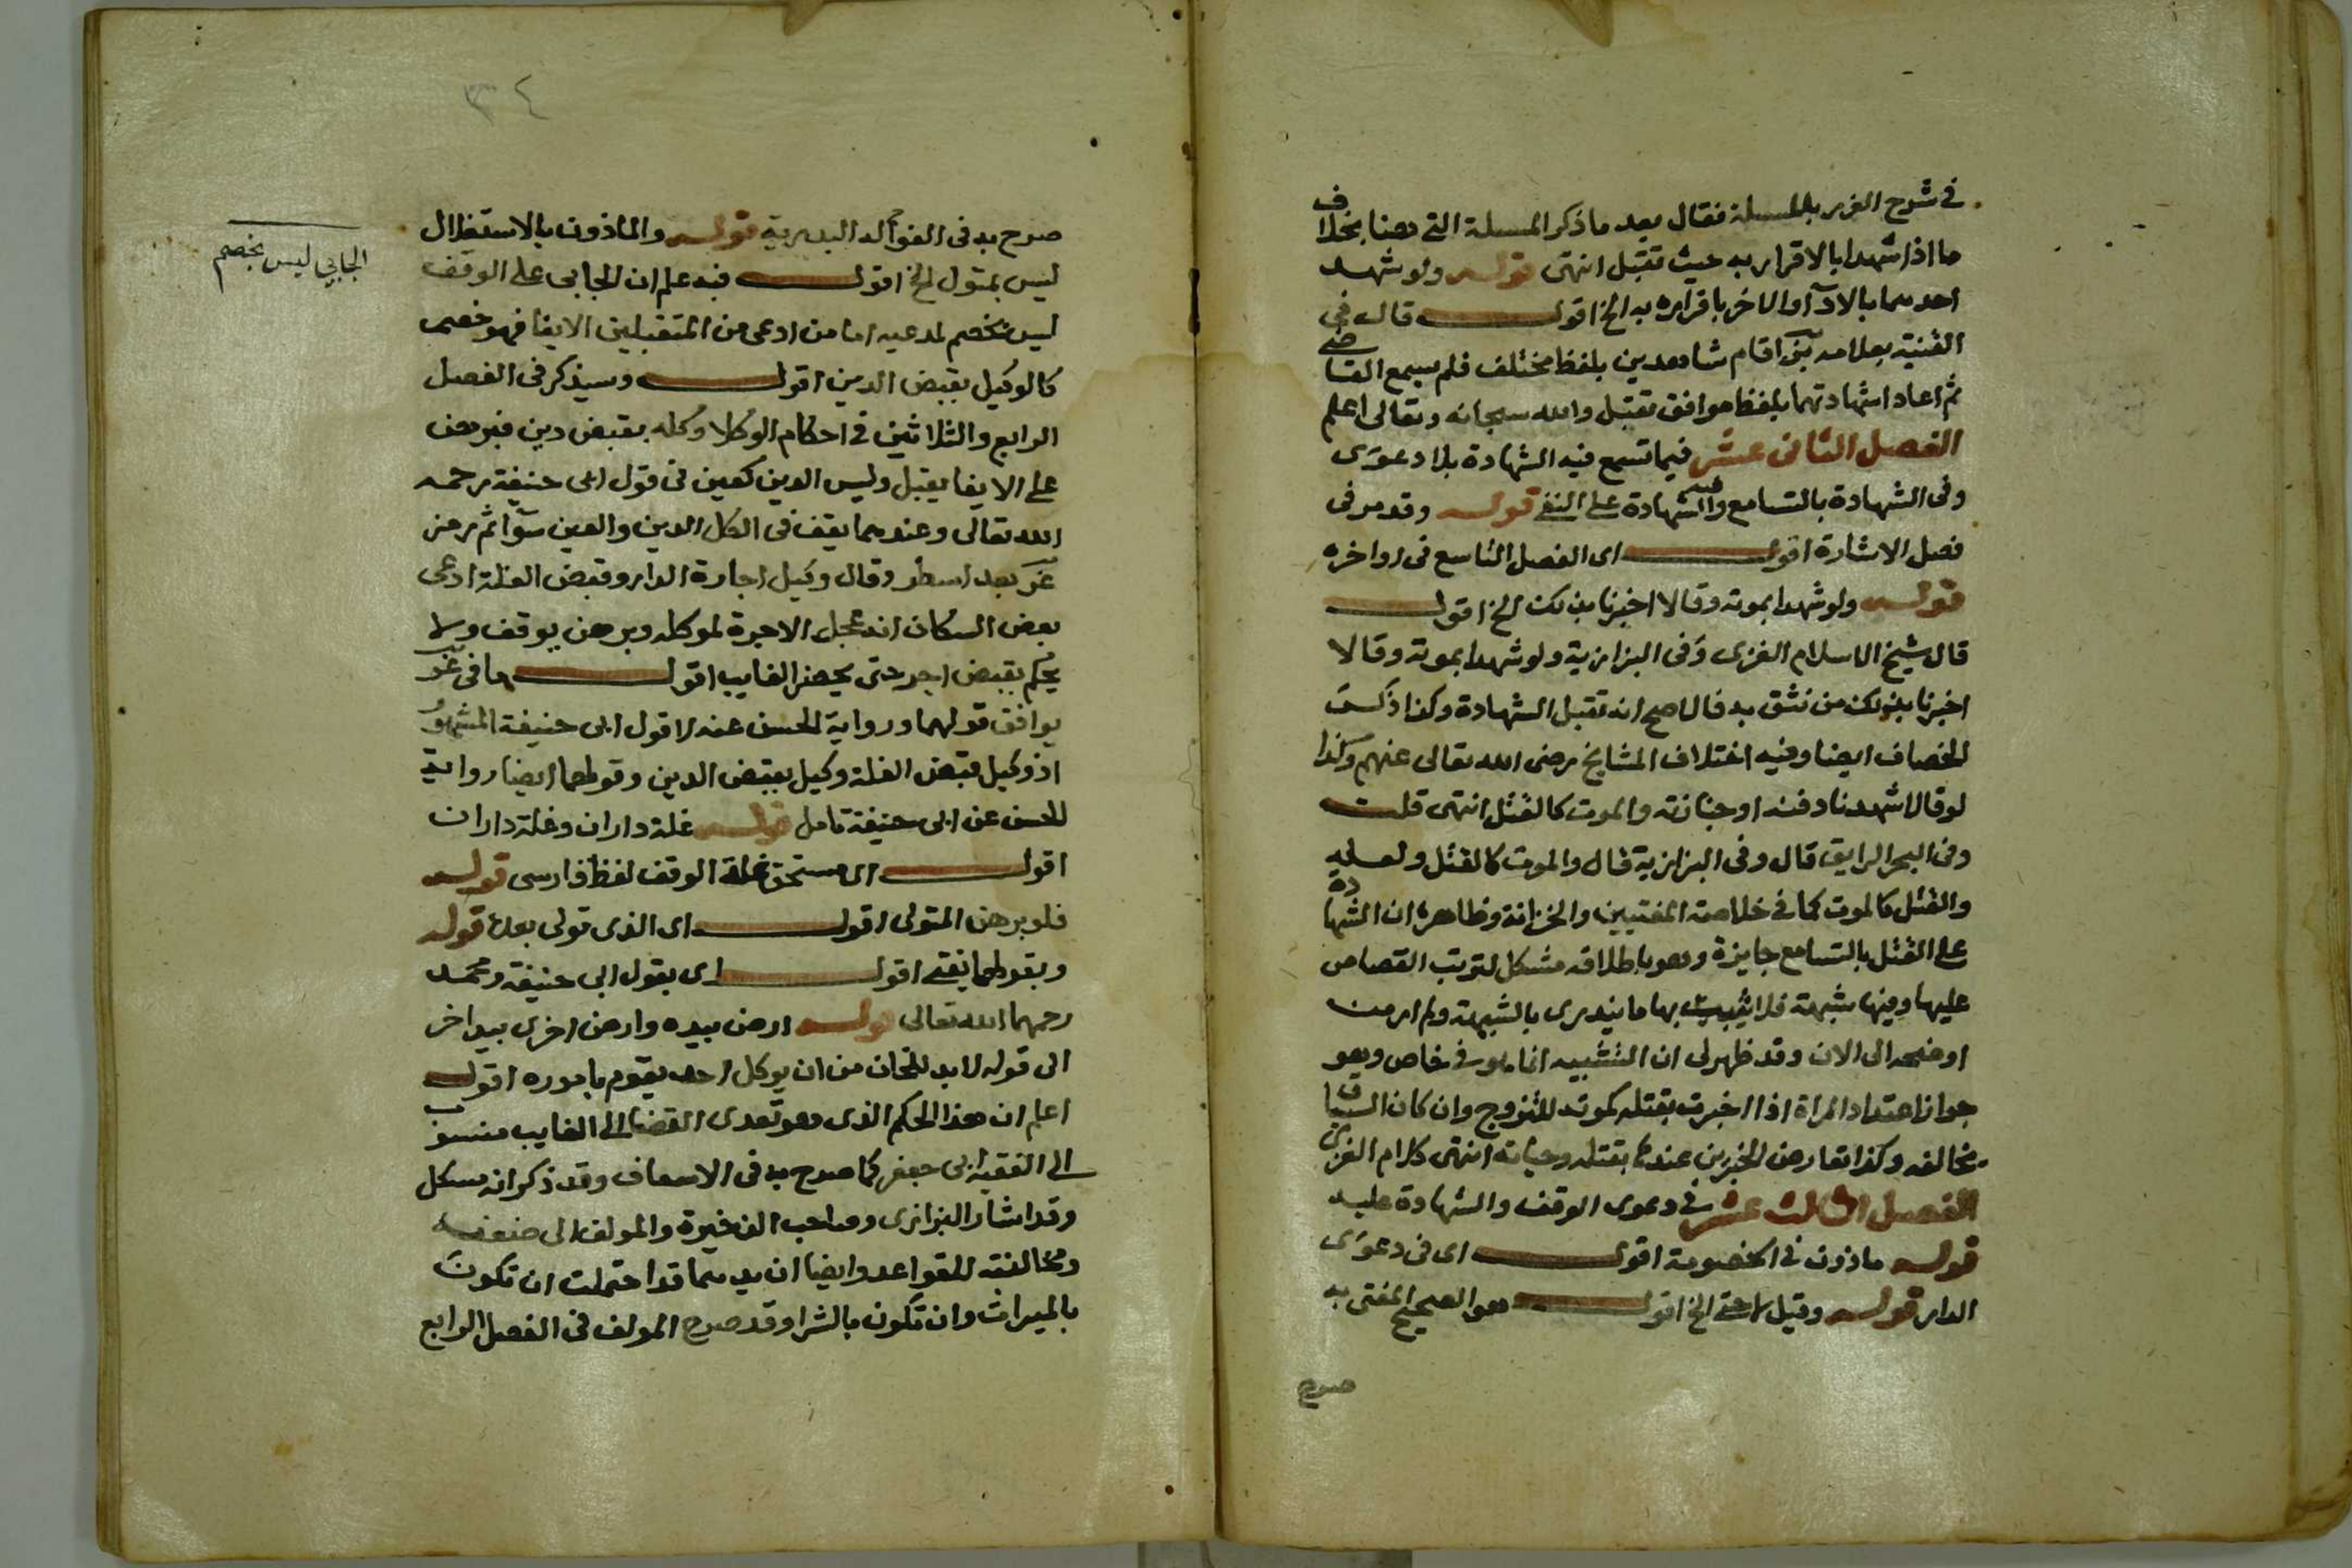 في شرح الغرر بالمسلة فقال بعد ما ذكر المسلة التي هنا بخلاف
ما اذا شهدا بالاقرار به حيث تقبل انتهى قوله ولو شهد
احدهما بالادآ او الاخر باقراره به الخ اقول قال في
القنية بعلامة اقام شاهدين بلفظ مختلف فلم يسمع القاضي
ثم اعاد اشهادتهما بلفظ موافق تقبل والله سبحانه وتعالى اعلم
الفصل الثانى عشر فيما تسمع فيه الشهادة بلا دعوى
وفى الشهادة بالتسامع والشهادة على النفي قوله وقد مر فى
فصل الاشارة اقول اى الفصل التاسع فى اواخره
قوله ولو شهدا بموته وقالا اخبرنا بذلك الخ اقول
قال شيخ الاسلام الغزى وفى البزازية ولو شهدا بموته وقالا
اخبرنا بذلك من نثق به فالاصح انه تقبل الشهادة وكذا ذكر
الخصاف ايضا وفيه اختلاف المشايخ رضى الله تعالى عنهم وكذا
لو قالا شهدنا دفنه او جنازته والموت كالقتل انتهى قلت
وفى البحر الرايق قال وفى البزازية قال والموت كالقتل ولعله
والقتل كالموت كما في خلاصة المفتيين والخزانة وظاهره ان الشهادة
على القتل بالتسامع جايزة وهو باطلاقه مشكل لترتب القصاص
عليها وفيها شبهة فلا يثبت بها ما يندرى بالشبهة ولم ار من
اوضحه الى الان وقد ظهر لى ان التشبيه انما هو في خاص وهو
جواز اعتداد المراة اذا اخبرت بقتله كموته للتزوج وان كان السياق
يخالفه وكذا تعارض الخبرين عندها بقتله وحياته انتهى كلام الغزى
الفصل الثالث عشر في دعوى الوقف والشهادة عليه
قوله ماذون في الخصومة اقول اى فى دعوى
الدار قوله وقيل لا حتى الخ اقول هو الصحيح المفتى به
صرح
٣٤
صرح به فى الفوآئد البدرية قوله والماذون بالاستغلال
ليس بمتول الخ اقول فبه علم ان الجابى على الوقف
ليس بخصم لمدعيه اما من ادعى من المتقبلين الايفا فهو خصم
كالوكيل بقبض الدين اقول وسيذكر فى الفصل
الرابع والثلاثين في احكام الوكلا وكله بقبض دين فبرهن
على الايفا يقبل وليس الدين كعين فى قول ابى حنيفة رحمه
الله تعالى وعندهما يقف فى الكل الدين والعين سوآ ثم رمز
بعد اسطر وقال وكيل اجارة الدار وقبض الغلة ادعى
بعض السكان انه عجل الاجرة لموكله وبرهن يوقف ولا
يحكم بقبض اجر حتى يحضر الغايب اقول ما فى
يوافق قولهما ورواية الحسن عنه لا قول ابى حنيفة المشهور
اذ وكيل قبض الغلة وكيل بقبض الدين وقولهما ايضا رواية
للحسن عن ابى حنيفة تامل قوله غلة داران وغلة داران
اقول اى مستحق غلة الوقف لفظ فارسى قوله
فلو برهن المتولى اقول اى الذى تولى بعده قوله
وبقولهما يفتى اقول اى بقول ابى حنيفة ومحمد
رحمهما الله تعالى قوله ارض بيده وارض اخرى بيد اخر
الى قوله لا بد للخان من ان يوكل احد يقوم باموره اقول
اعلم ان هذا الحكم الذى هو تعدى القضا الى الغايب منسوب
الى الفقيه ابى جعفر كما صرح به فى الاسعاف وقد ذكر انه مسكل
وقد اشار البزازى وصاحب الذخيرة والمولف الى ضعفه
ومخالفته للقواعد وايضا ان يديهما قد احتملت ان تكون
بالميراث وان تكون بالشرا وقد صرح المولف فى الفصل الرابع
الجابى ليس بخصم